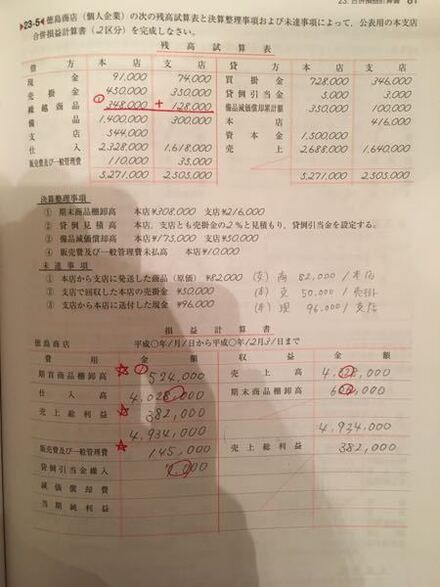 23. 合併損益計算書 81
23-5 徳島商店（個人企業）の次の残高試算表と決算整理事項および未達事項によって，公表用の本支店
合併損益計算書（2区分）を完成しなさい。
残高試算表
借方 本店 支店 貸方 本店 支店
現金 91,000 74,000 買掛金 728,000 346,000
売掛金 450,000 350,000 貸倒引当金 5,000 3,000
① 繰越商品 348,000 + 128,000 備品減価償却累計額 350,000 100,000
備品 1,400,000 300,000 本店 416,000
支店 544,000 資本金 1,500,000
仕入 2,328,000 1,618,000 売上 2,688,000 1,640,000
販売費及び一般管理費 110,000 35,000
5,271,000 2,505,000 5,271,000 2,505,000
決算整理事項
① 期末商品棚卸高 本店¥308,000 支店¥216,000
② 貸倒見積高 本店，支店とも売掛金の2％と見積もり，貸倒引当金を設定する。
③ 備品減価償却高 本店¥175,000 支店¥50,000
④ 販売費及び一般管理費未払高 本店¥10,000
未達事項
① 本店から支店に発送した商品（原価） ¥82,000 (支) 商 82,000 / 本店
② 支店で回収した本店の売掛金 ¥50,000 (本) 支 50,000 / 売掛
③ 支店から本店に送付した現金 ¥96,000 (本) 現 96,000 / 支店
損益計算書
徳島商店 平成○年1月1日から平成○年12月31日まで
費用 金額 収益 金額
期首商品棚卸高 ☆ 524,000 売上高 4,328,000
仕入高 4,028,000 期末商品棚卸高
売上総利益 ☆ 382,000
4,934,000 4,934,000
販売費及び一般管理費 ★ 145,000 売上総利益 382,000
貸倒引当金繰入
減価償却費
当期純利益